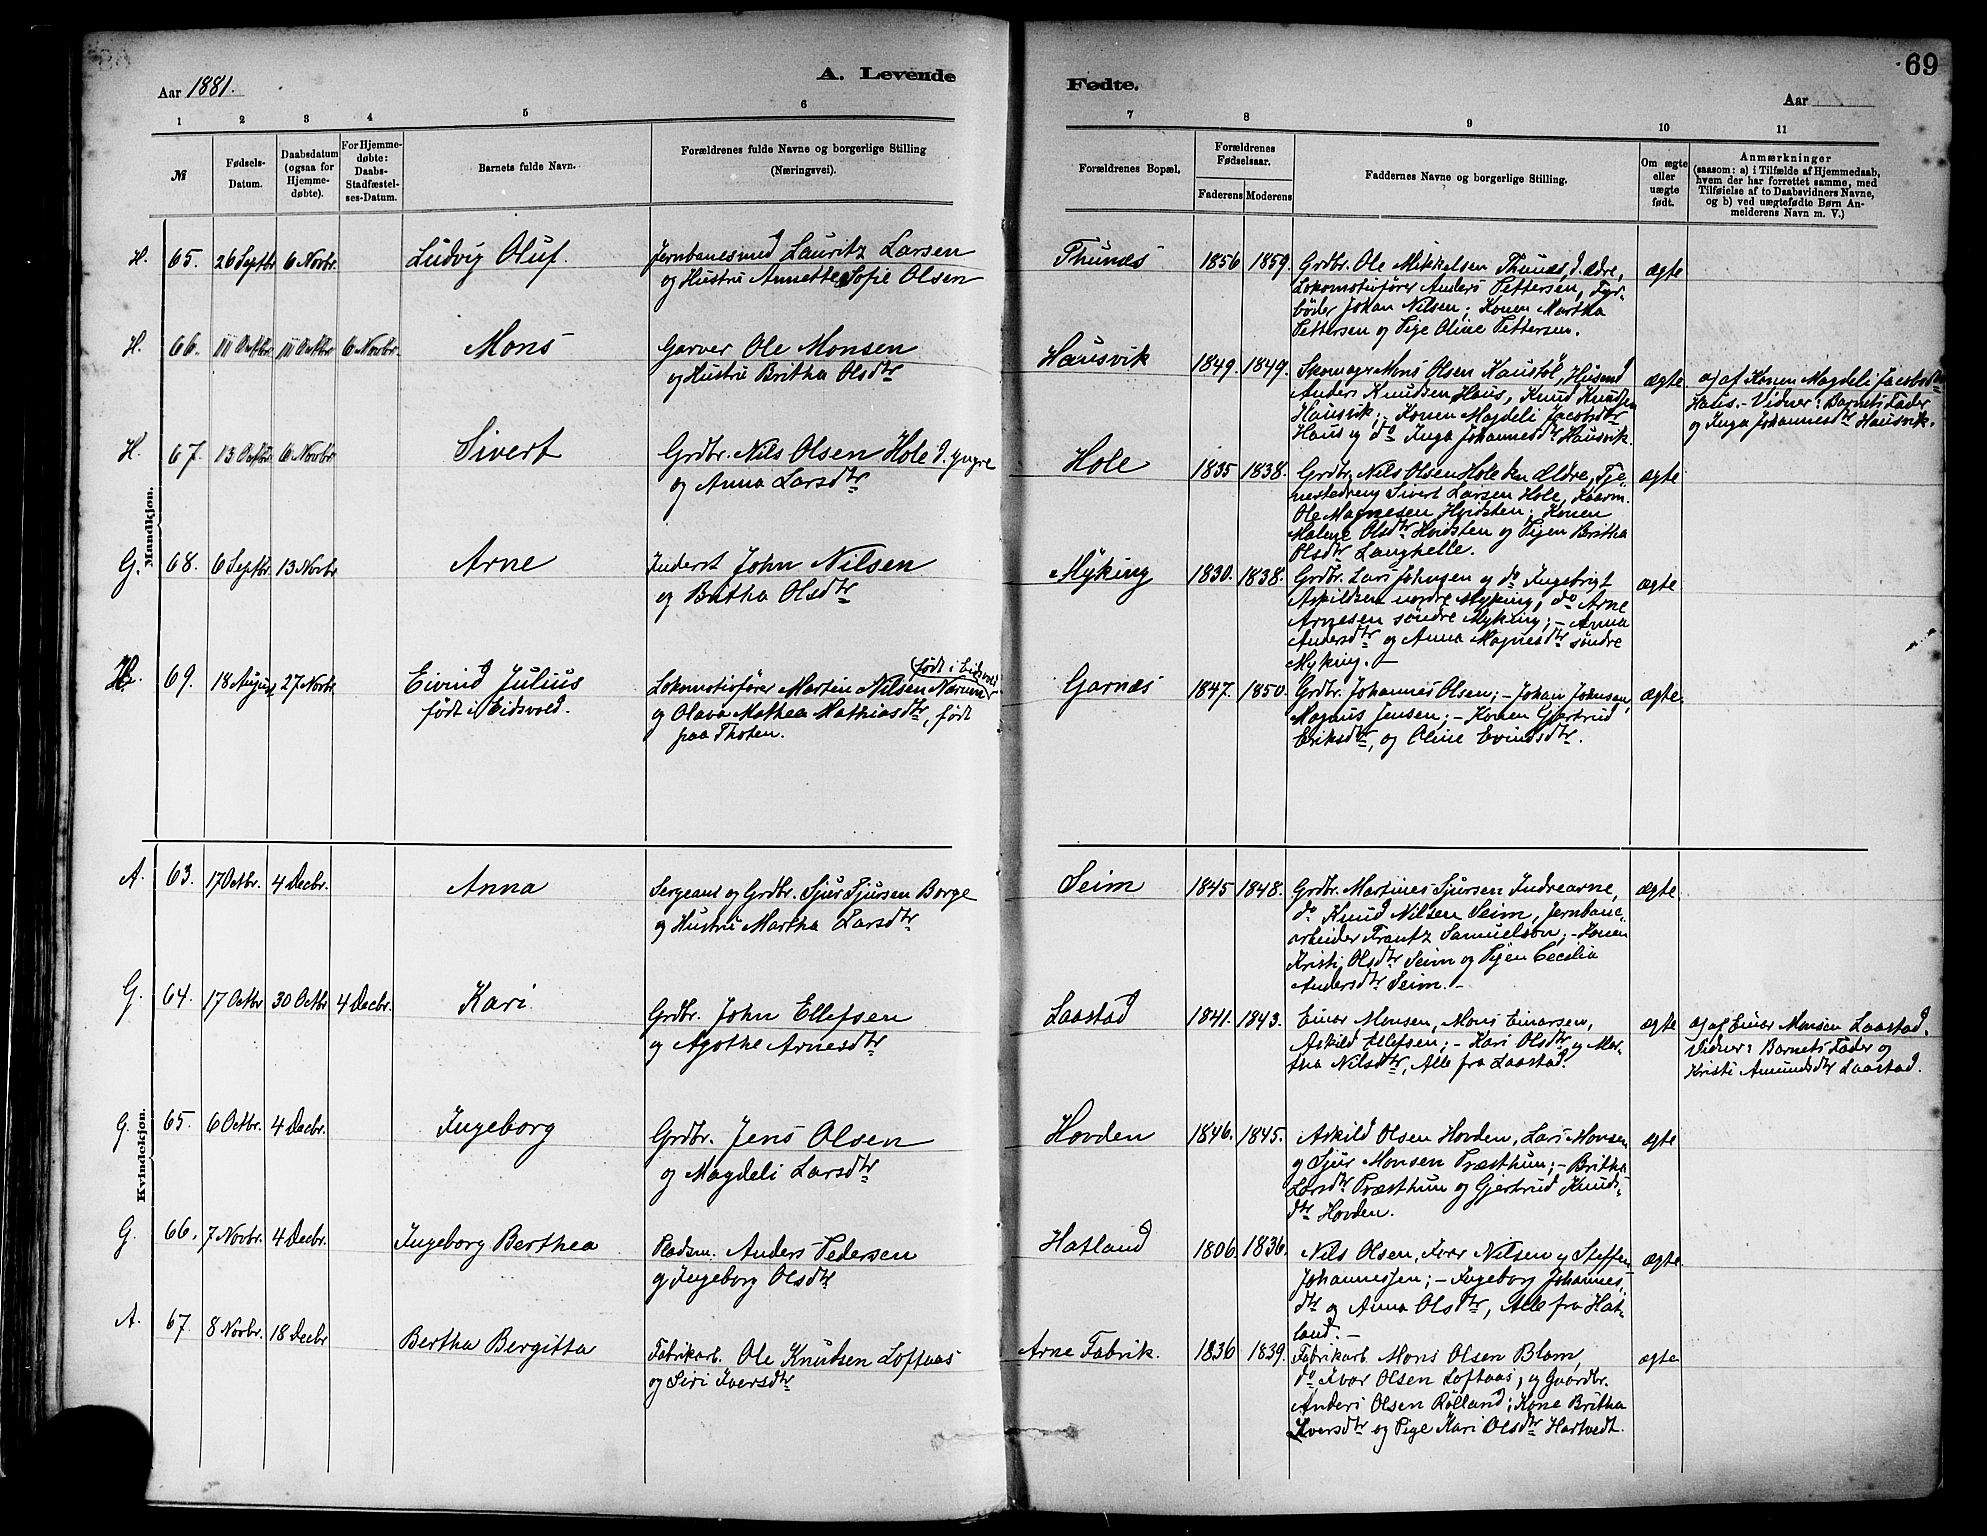 69
Aar 1881.
A. Levende
Fødte.
Aar
1 2 3 4 5 6 7 8 9 10 11
№
Fødsels-
Datum.
Daabsdatum
(ogsaa for
Hjemme-
døbte).
For Hjemme-
døbte:
Daabs-
Stadfæstel-
ses-Datum.
Barnets fulde Navn.
Forældrenes fulde Navne og borgerlige Stilling
(Næringsvei).
Forældrenes Bopæl.
Forældrenes
Fødselsaar.
Faderens Moderens
Faddernes Navne og borgerlige Stilling.
Om ægte
eller
uægte
født.
Anmærkninger
(saasom: a) i Tilfælde af Hjemmedaab,
hvem der har forrettet samme, med
Tilføielse af to Daabsvidners Navne,
og b) ved uægtefødte Børn An-
melderens Navn m. V.)
Mandkjøn.
H. 65. 26 Septbr 6 Novbr. Ludvig Oluf.
Jernbanesmed Lauritz Larsen
og Hustru Annette Sofie Olsen
Thunæs 1856 1859.
Grdbr. Ole Mikkelsen Thunæs, d. ædre,
Lokomotivfører Anders Pettersen, Fyr-
bøder Johan Nilsen; Konen Martha
Pettersen og Pige Oline Pettersen.
ægte
H. 66. 10 Octbr 10 Octbr 6 Novbr. Mons
Garver Ole Monsen
og Hustru Britha Olsdtr
Hausvik 1849. 1849.
Skomagr Mons Olsen Naustøl, Husmd
Anders Knudsen Haus, Knud Knudsen
Hausvik; - Konen Magdeli Jacobsdtr
Haus og do Inga Johannesdtr Hausvik.
ægte
a) af Konen Magdeli Jacobsdtr
Haus. - Vidner: Barnets Fader
og Inga Johannesdtr Hausvik.
H. 67. 13 Octbr 6 Novbr Sivert
Grdbr. Nils Olsen Hole d. yngre
og Anna Larsdtr
Hole 1835 1838.
Grdbr. Nils Olsen Hole den Ældre, Tje-
nestedreng Sivert Larsen Hole, Kaarm.
Ole Magnesen Hvidsten; Konen
Malene Olsdtr Hvidsten og Pigen Britha
Olsdtr Langhelle.
ægte
G. 68. 6 Septbr. 13 Novbr Arne
Inderst John Nilsen
og Britha Olsdtr
Myking 1830. 1838.
Grdbr. Lars Johnsen og do Ingebrigt
Askildsen nordre Myking, do Arne
Arnesen søndre Myking; - Anna
Andersdtr og Anna Magnesdtr søndre
Myking. -
ægte
H. 69. 18 August 27 Novbr Eivind Julius
født i Eidsvold.
Lokomotivfører Martin Nilsen (født i Eidsvold
og Olava Mathea Mathiasdtr, født
paa Thoten.
Garnæs 1847. 1850.
Grdbr. Johannes Olsen; - Johan Johnsen,
Magnus Jensen; - Konen Gjertrud
Eriksdtr, og Oline Evindsdtr.
ægte.
Kvindekjøn.
A. 63. 17 Octbr. 4 Decbr. Anna
Sergeant og Grdbr. Sjur Sjursen Borge
og Hustru Martha Larsdtr
Seim 1845 1848.
Grdbr. Martines Sjursen Indrearne,
do Knud Nilsen Seim, Jernbane-
arbeider Frantz Samuelson; - Konen
Kristi Olsdtr Seim og Pigen Cecilia
Andersdtr Seim. -
ægte
G. 64. 17 Octbr 30 Octbr 4 Decbr. Kari
Grdbr. John Ellefsen
og Agothe Arnesdtr
Laastad 1841. 1843.
Einar Monsen, Mons Einarsen,
Askild Ellefsen; - Kari Olsdtr og Mar-
tha Nilsdtr, Alle fra Laastad.
ægte
a) af Einar Monsen Laastad.
Vidner: Barnets Fader og
Kristi Amundsdtr Laastad.
G. 65. 6 Octbr. 4 Decbr. Ingeborg
Grdbr. Jens Olsen
og Magdeli Larsdtr
Hovden 1846. 1845.
Askild Olsen Hovden, Lars Monsen
og Sjur Monsen Præsthun; - Britha
Larsdtr Præsthun og Gjertrud Knuds-
dtr Hovden.
ægte
G. 66. 7 Novbr. 4 Decbr. Ingeborg Berthea
Pladsm. Anders Pedersen
og Ingeborg Olsdtr
Hatland 1806. 1836.
Nils Olsen, Ivar Nilsen og Steffen
Johannessen; - Ingeborg Johannes-
dtr og Anna Olsdtr, Alle fra Hat-
land. -
ægte
A. 67. 8 Novbr. 18 Decbr Bertha Bergitta
Fabrikarb. Ole Knudsen Loftaas
og Siri Iversdtr
Arne Fabrik. 1836 1839.
Fabrikarb. Mons Olsen Blom,
do Ivar Olsen Loftaas, og Gaardbr.
Anders Olsen Rølland; Kone Britha
Iversdtr og Pige Kari Olsdtr Hartvedt.
ægte